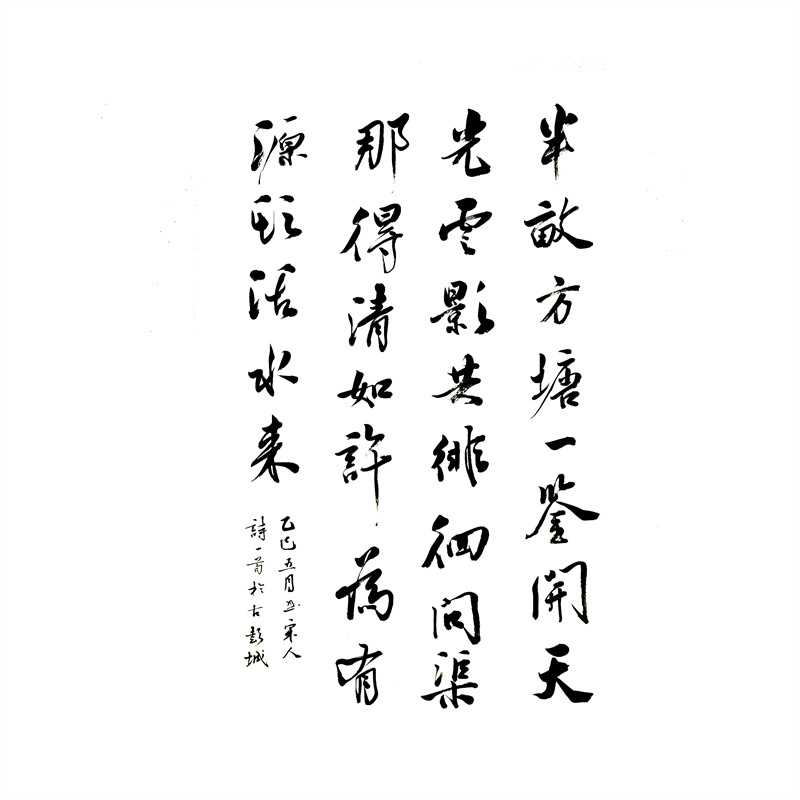 半畝方塘一鑒開天
光雲影共徘徊問渠
那得清如許為有
源頭活水来
乙巳五月書宋人
詩一首於古彭城